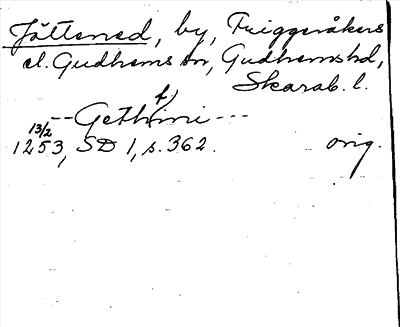 Jättened, by, Friggeråkers
el. Gudhems sn, Gudhems hd,
Skarab. l.
-- Gethini ---
13/2
1253, SD 1, s. 362. orig.